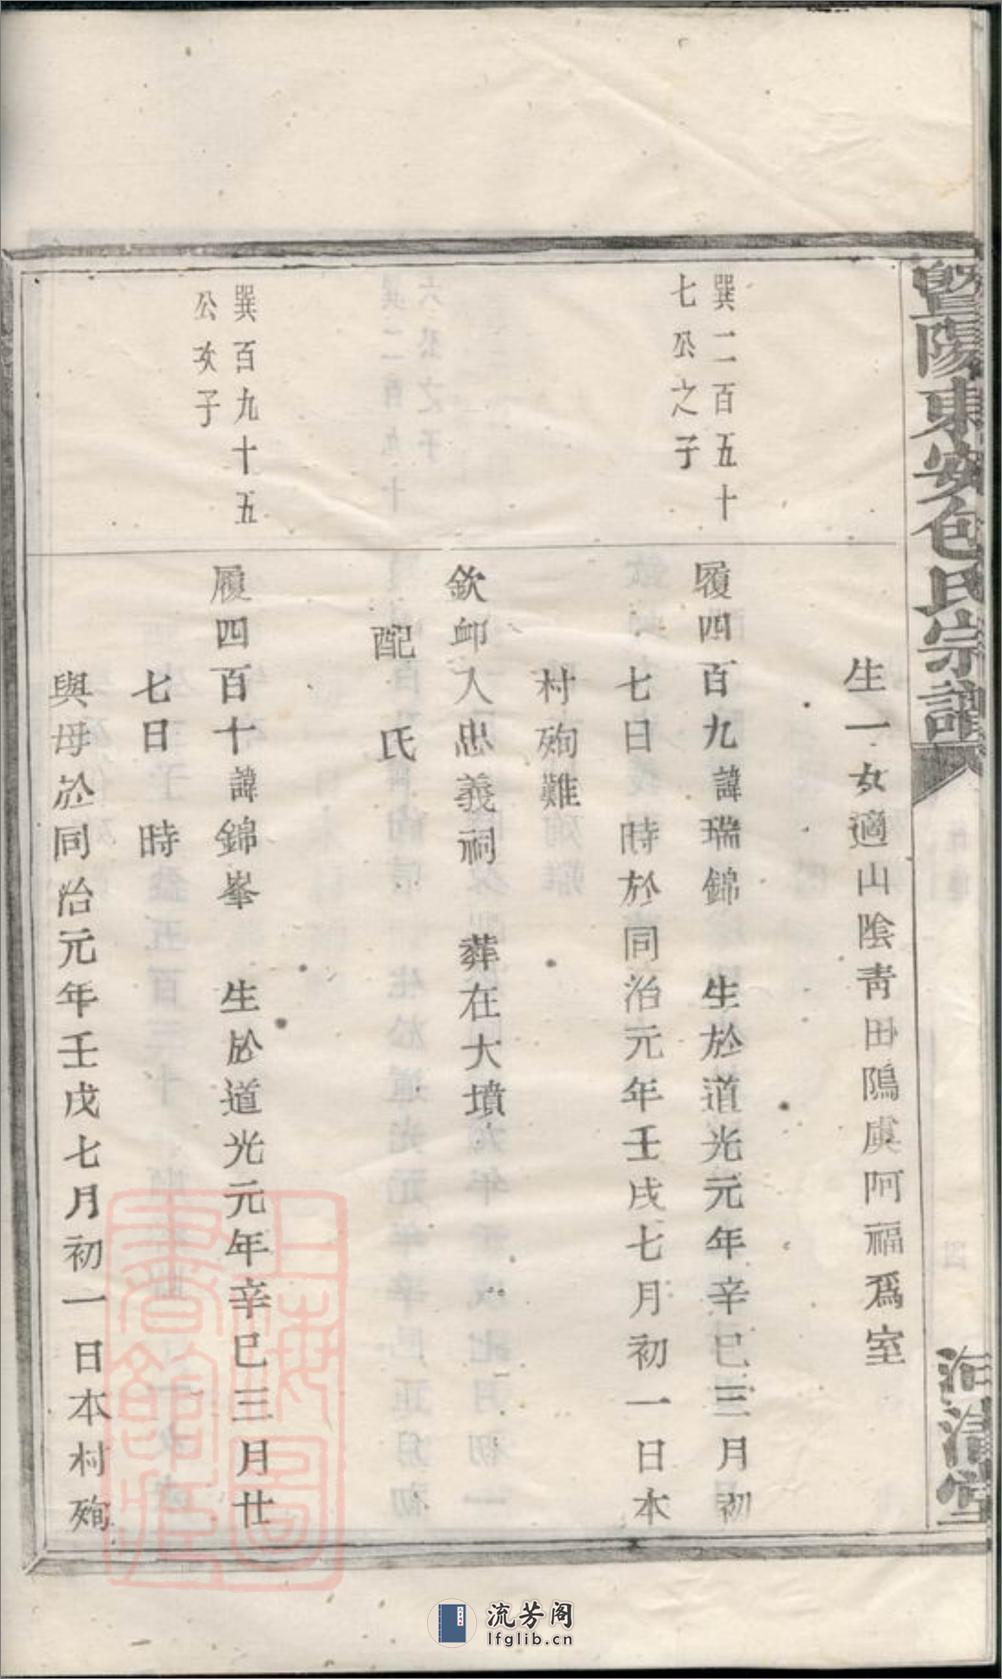 暨陽東安包氏宗譜
清堂
生一女適山陰青田隖虞阿福爲室
巽二百五十
七公之子
履四百九諱瑞錦 生於道光元年辛巳三月初
七日 時於同治元年壬戌七月初一日本
村殉難
欽卹入忠義祠 葬在大墳
配 氏
巽百九十五
公次子
履四百十諱錦峯 生於道光元年辛巳三月廿
七日 時
與母於同治元年壬戌七月初一日本村殉
上海圖書館藏
流芳阁
lfglib.cn